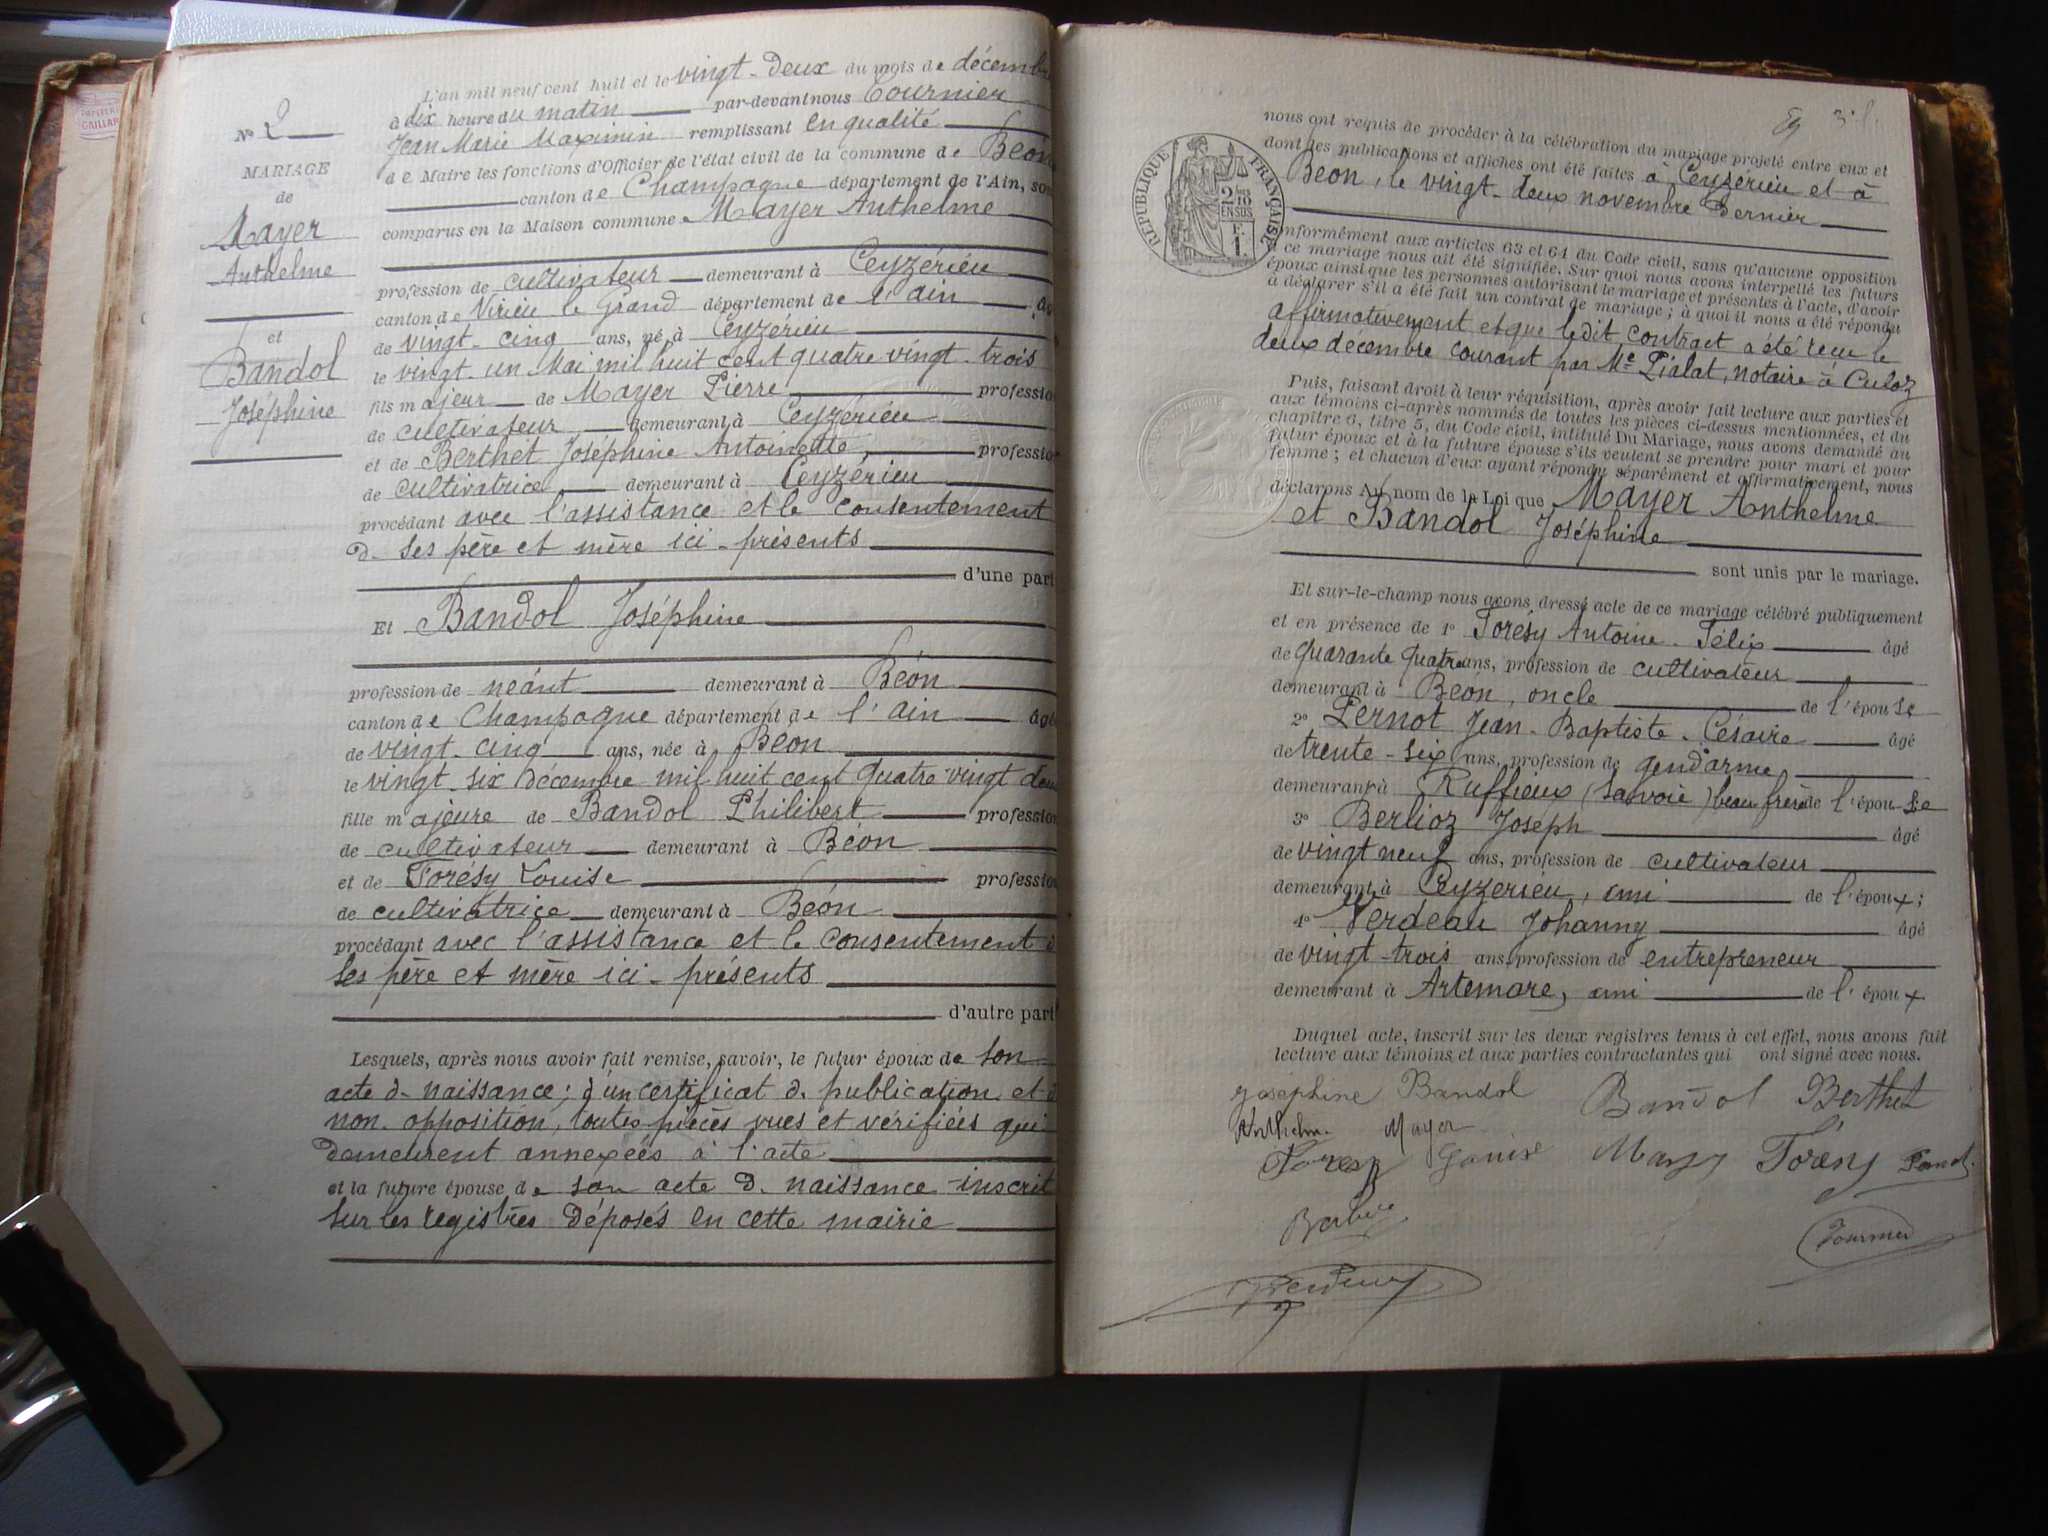 N° 2
MARIAGE
de
Mayer
Anthelme
et
Bandol
Joséphine
L'an mil neuf cent huit et le vingt-deux du mois de décembre
à dix heure du matin par-devant nous Tournier
Jean Marie Maximin remplissant en qualité
de Maire les fonctions d'Officier de l'état civil de la commune de Béon
canton de Champagne département de l'Ain, son
comparus en la Maison commune Mayer Anthelme
profession de cultivateur demeurant à Ceyzérieu
canton de Virieu le Grand département de l'ain âgé
de vingt-cinq ans, né à Ceyzérieu
le vingt-un Mai mil huit cent quatre vingt-trois
fils majeur de Mayer Pierre profession
de cultivateur demeurant à Ceyzérieu
et de Berthet Joséphine Antoinette, profession
de cultivatrice demeurant à Ceyzérieu
procédant avec l'assistance et le consentement
de ses père et mère ici-présents
d'une part
Et Bandol Joséphine
profession de néant demeurant à Béon
canton de Champagne département de l'ain âgé
de vingt-cinq ans, née à Béon
le vingt-six Décembre mil huit cent quatre vingt deux
fille majeure de Bandol Philibert profession
de cultivateur demeurant à Béon
et de Forésy Louise profession
de cultivatrice demeurant à Béon
procédant avec l'assistance et le consentement d
ses père et mère ici-présents
d'autre part
Lesquels, après nous avoir fait remise, savoir, le futur époux de son
acte de naissance; d'un certificat de publication et d
non-opposition, toutes pièces vues et vérifiées qui
demeurent annexées à l'acte
et la future épouse de son acte de naissance inscrit
sur les registres déposés en cette mairie
nous ont requis de procéder à la célébration du mariage projeté entre eux et
dont les publications et affiches ont été faites à Ceyzérieu et à
Béon, le vingt-deux novembre Dernier
RÉPUBLIQUE FRANÇAISE
2/10 EN SUS
F. 1.
conformément aux articles 63 et 64 du Code civil, sans qu'aucune opposition
à ce mariage nous ait été signifiée. Sur quoi nous avons interpellé les futurs
époux ainsi que les personnes autorisant le mariage et présentes à l'acte, d'avoir
à déclarer s'il a été fait un contrat de mariage; à quoi il nous a été répondu
affirmativement et que ledit contract a été reçu le
deux décembre courant par Me Pialat, notaire à Culoz
Puis, faisant droit à leur réquisition, après avoir fait lecture aux parties et
aux témoins ci-après nommés de toutes les pièces ci-dessus mentionnées, et du
chapitre 6, titre 5, du Code civil, intitulé Du Mariage, nous avons demandé au
futur époux et à la future épouse s'ils veulent se prendre pour mari et pour
femme; et chacun d'eux ayant répondu séparément et affirmativement, nous
déclarons Au nom de la Loi que Mayer Anthelme
et Bandol Joséphine
sont unis par le mariage.
Et sur-le-champ nous avons dressé acte de ce mariage célébré publiquement
et en présence de 1° Forésy Antoine-Félix âgé
de quarante quatre ans, profession de cultivateur
demeurant à Béon, oncle de l'épouse
2° Pernot Jean-Baptiste-Césaire âgé
de trente-six ans, profession de gendarme
demeurant à Ruffieux (Savoie) beau frère de l'épouse
3° Berlioz Joseph âgé
de vingt neuf ans, profession de cultivateur
demeurant à Ceyzerieu, ami de l'époux;
4° Verdeau Johanny âgé
de vingt-trois ans, profession de entrepreneur
demeurant à Artemare, ami de l'époux
Duquel acte, inscrit sur les deux registres tenus à cet effet, nous avons fait
lecture aux témoins et aux parties contractantes qui ont signé avec nous.
Joséphine Bandol Bandol Berthet
Anthelme Mayer
Foresy Louise Mayer Forésy
Tournier